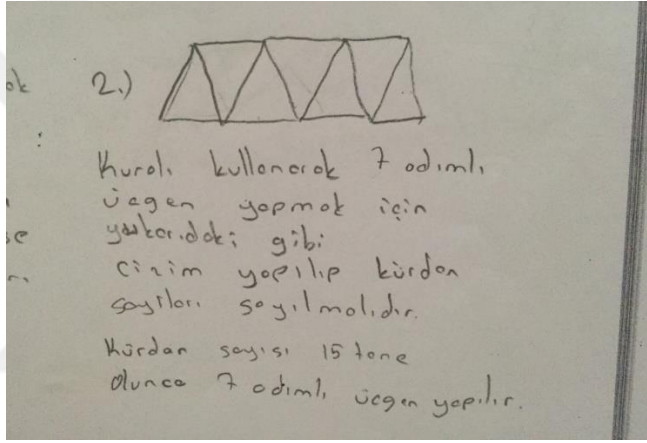 ok
2.)
:
Kuralı kullanarak 7 adımlı
üçgen yapmak için
se yukarıdaki gibi
çizim yapılıp kürdan
sayıları sayılmalıdır.
Kürdan sayısı 15 tane
Olunca 7 adımlı üçgen yapılır.